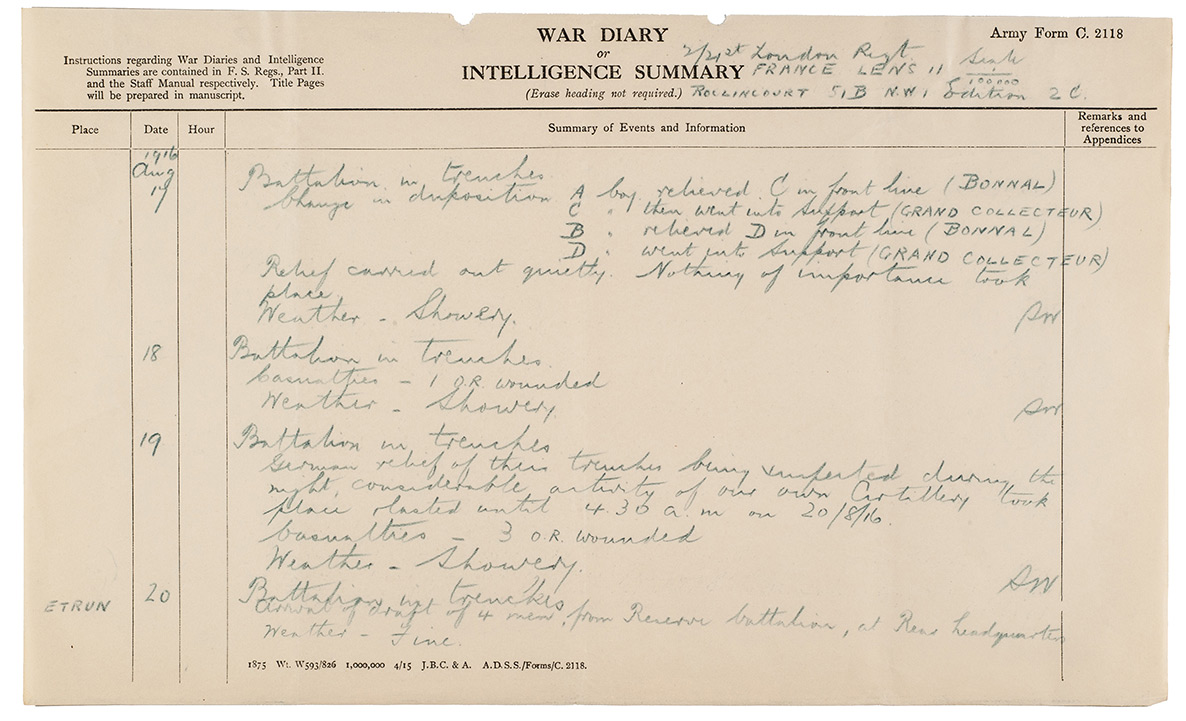 WAR DIARY
or
INTELLIGENCE SUMMARY
(Erase heading not required.)
Army Form C. 2118
Instructions regarding War Diaries and Intelligence
Summaries are contained in F. S. Regs., Part II.
and the Staff Manual respectively. Title Pages
will be prepared in manuscript.
2/21st London Regt.
FRANCE LENS 11 Scale
100,000
ROLLINCOURT 51B N.W.1 Edition 2 C.
Place
Date
Hour
Summary of Events and Information
Remarks and
references to
Appendices
1916
Aug
17
Battalion in trenches
Change in disposition A Coy relieved C in front line (BONNAL)
C " then went into support (GRAND COLLECTEUR)
B " relieved D in front line (BONNAL)
D " went into support (GRAND COLLECTEUR)
Relief carried out quietly. Nothing of importance took
place.
Weather - Showery.
18 Battalion in trenches.
Casualties - 1 O.R. wounded
Weather - Showery
19 Battalion in trenches
German relief of their trenches being suspected during the
night, considerable activity of our own Artillery took
place & lasted until 4.30 a.m on 20/8/16.
Casualties - 3 O.R. wounded
Weather - Showery.
ETRUN 20 Battalion in trenches
Arrival of draft of 4 men, from Reserve battalion, at Rear headquarters
Weather - Fine.
1875 Wt. W593/826 1,000,000 4/15 J.B.C. & A. A.D.S.S./Forms/C. 2118.